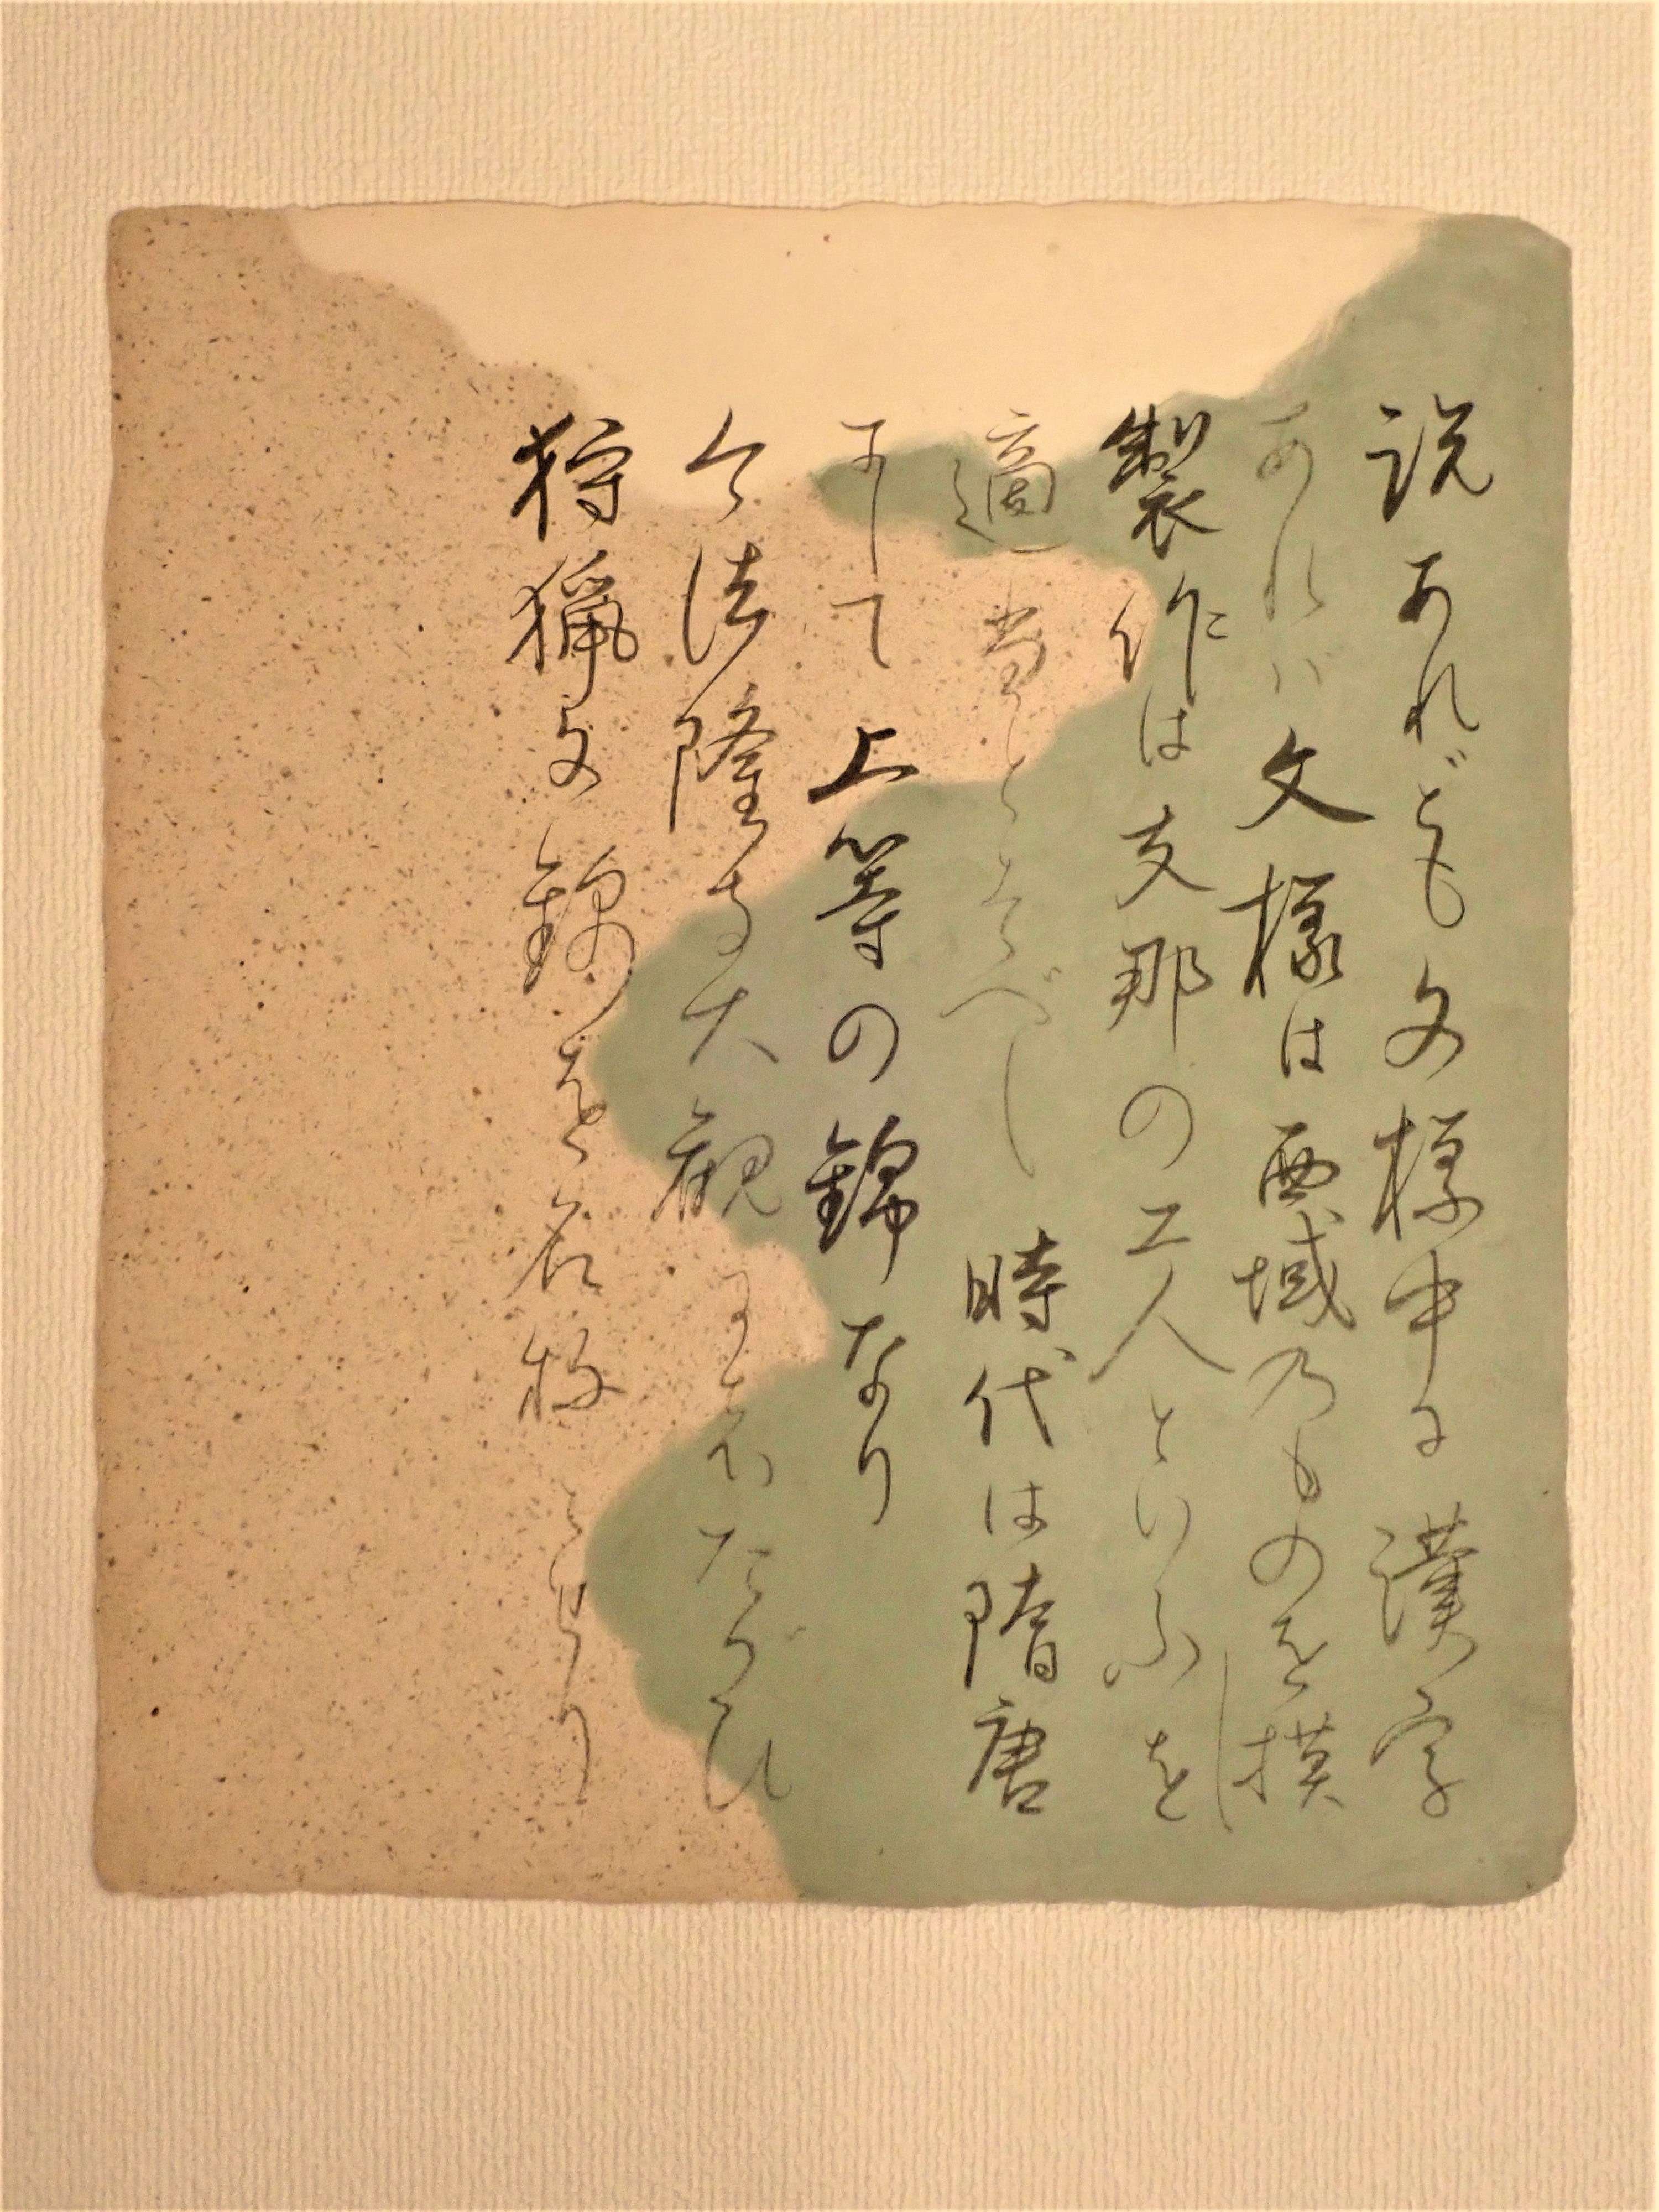 説あれども文様中に漢字
あれば文様は西域乃ものを模し
製作は支那の工人といふを
適当とすべし　時代は隋唐
にして上等の錦なり
今法隆寺大観にしたがひ
狩猟文錦を名物とせり